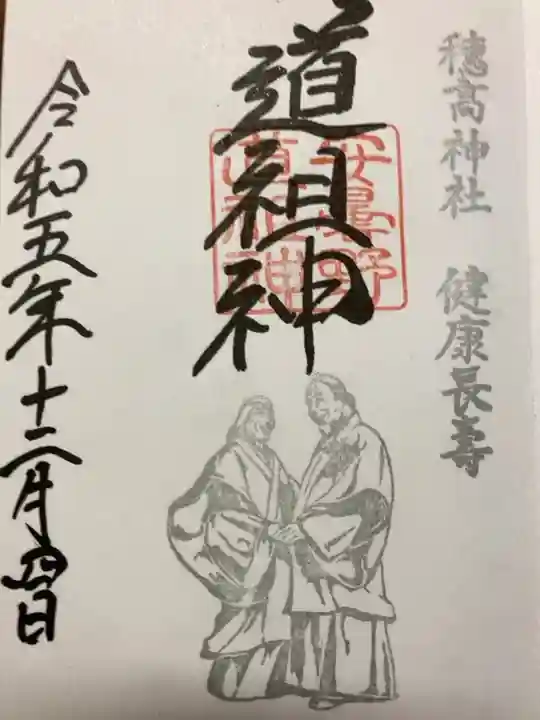 穂高神社 健康長寿
道祖神
安曇野
道祖神
令和五年十二月六日